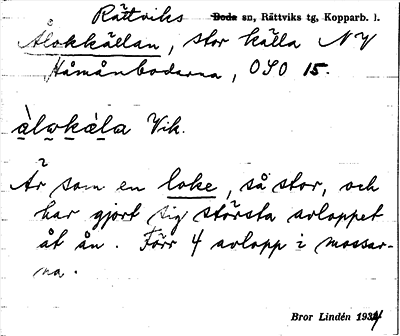 Rättviks Boda sn, Rättviks tg, Kopparb. l.
Ålokkällan, stor källa NV
Håmånbodarna, OSO 15.
àlωkàla Vik.
Är som en loke, så stor, och
har gjort sig största avloppet
åt ån. Förr 4 avlopp i mossar-
na.
Bror Lindén 1934